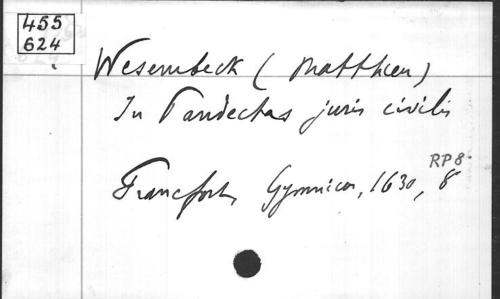 455
624
Wesembeck (Matthieu)
In Pandectas juris civilis
RP8
Francfort, Gymnicus, 1630, 8